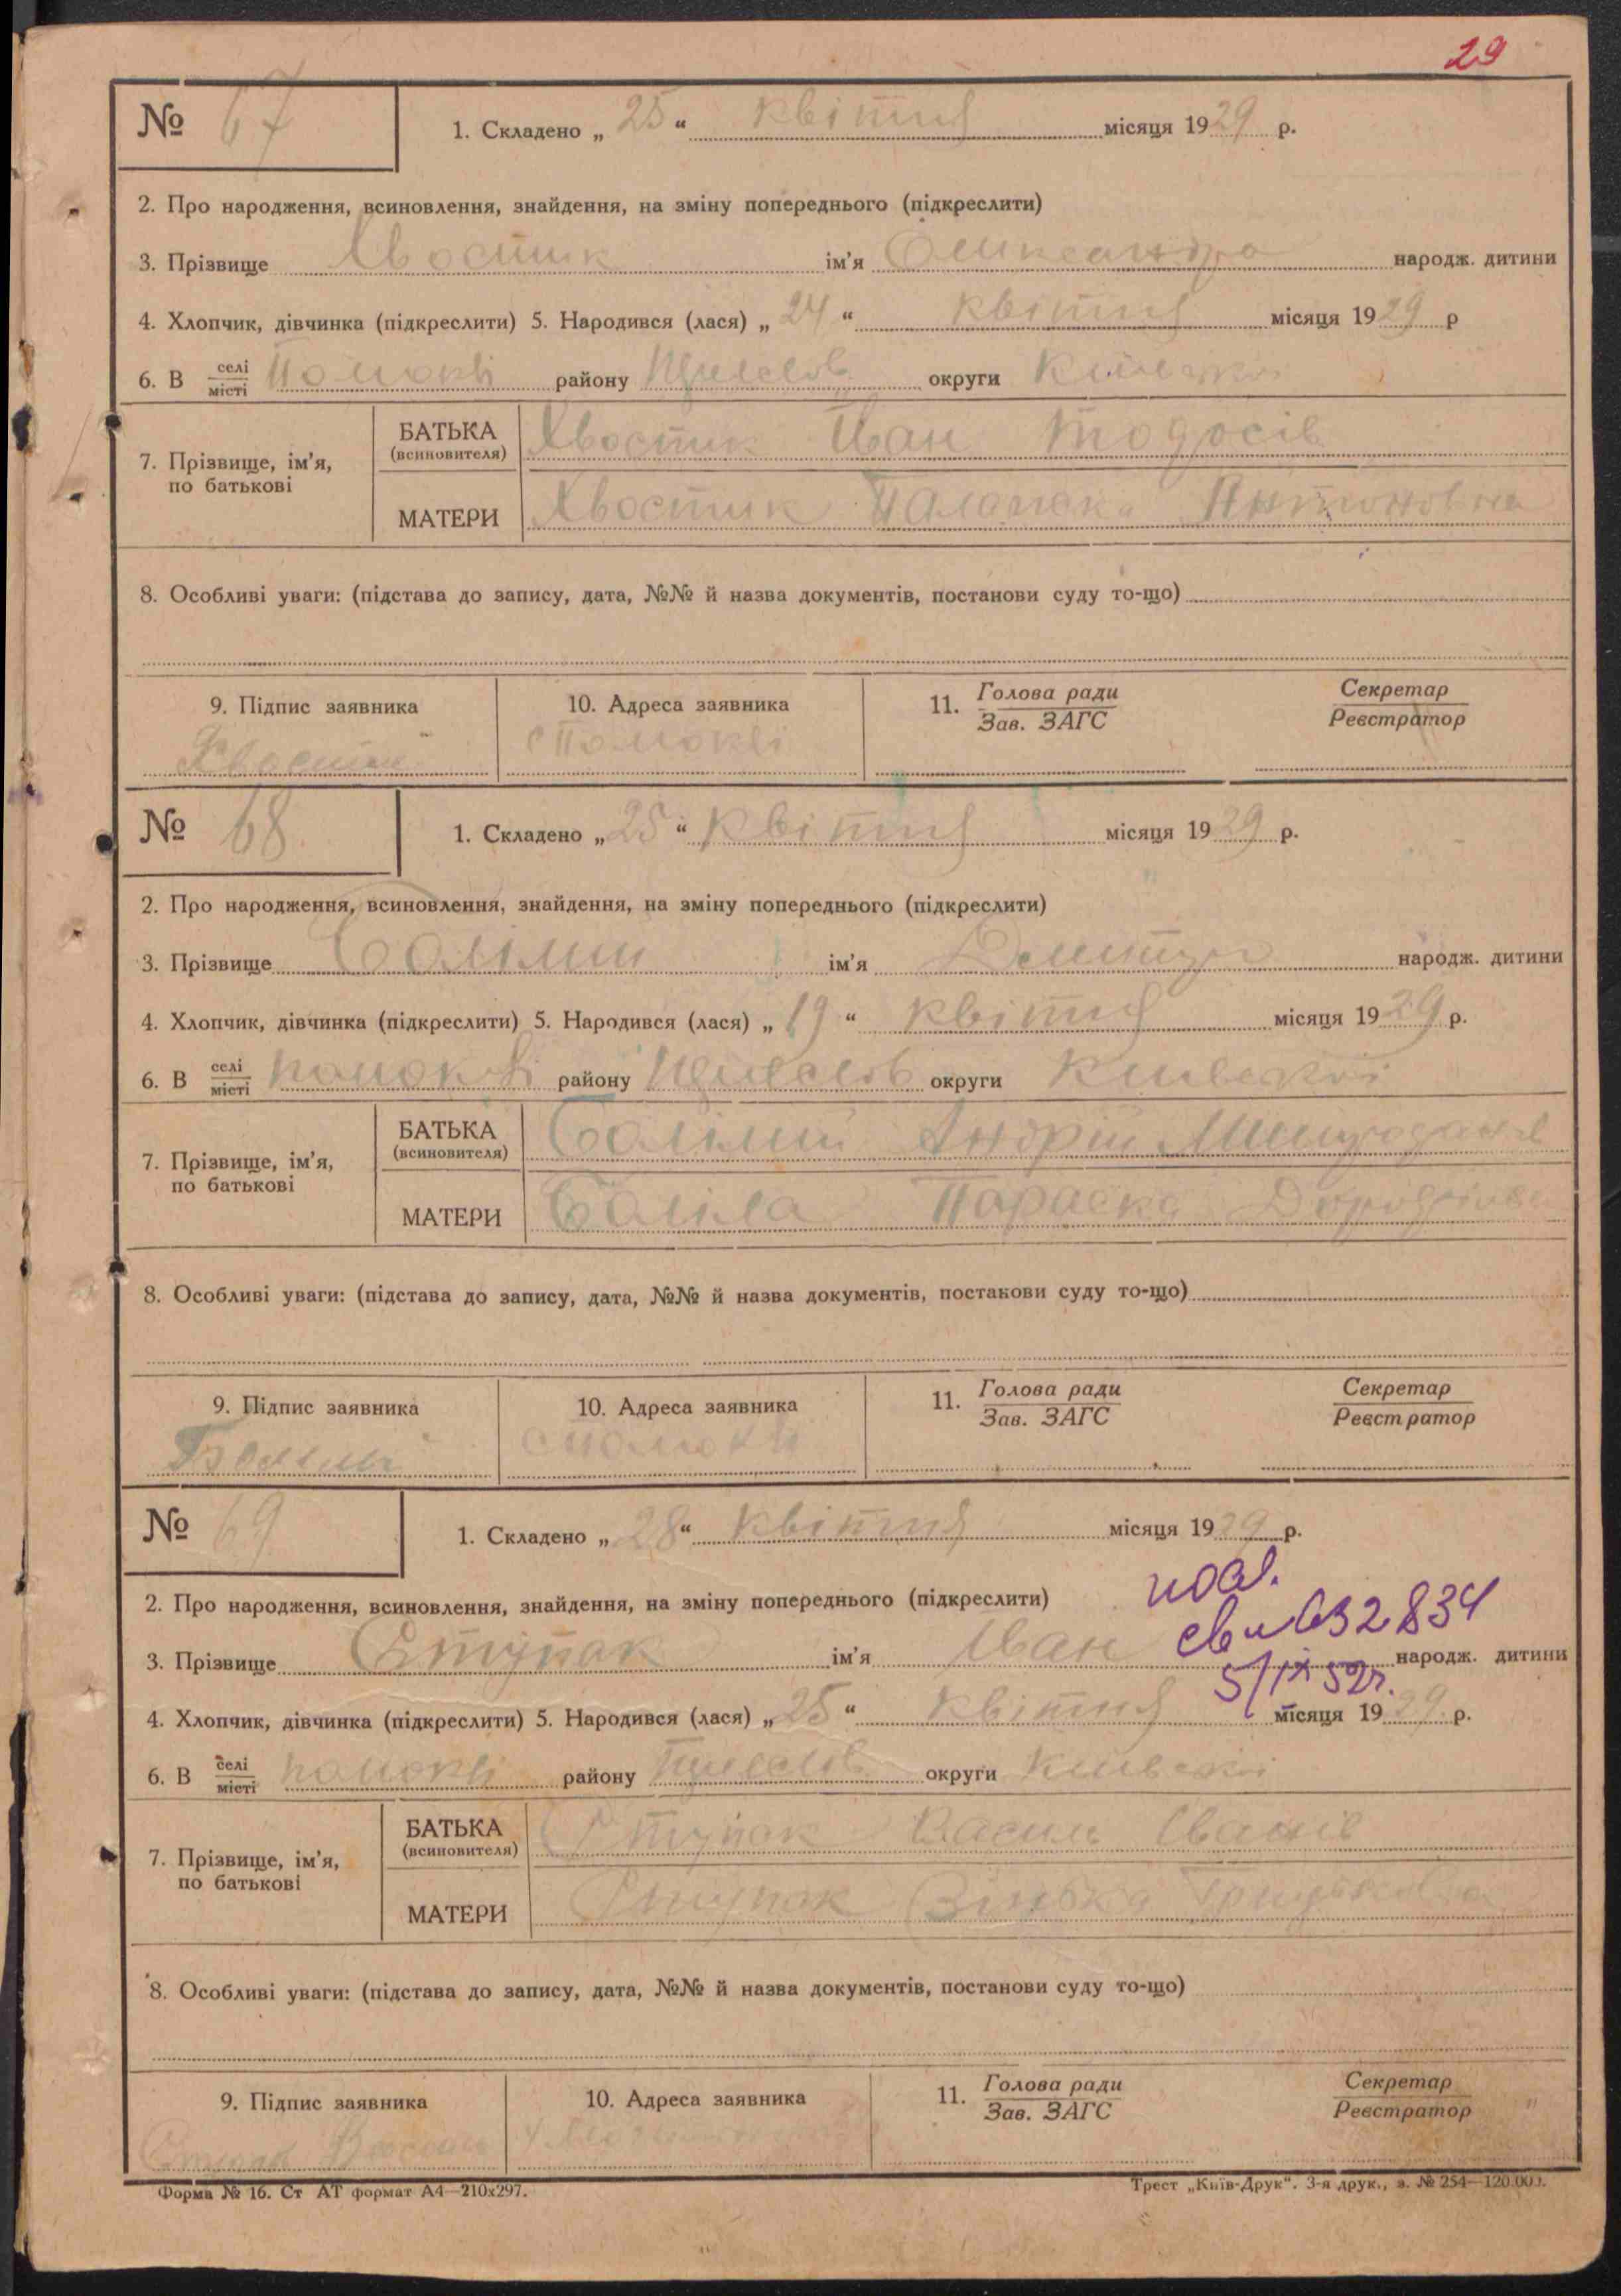 29
№ 67 1. Складено „ 25 “ квітня місяця 1929 р.
2. Про народження, всиновлення, знайдення, на зміну попереднього (підкреслити)
3. Прізвище Хвостик ім’я Олександра народж. дитини
4. Хлопчик, дівчинка (підкреслити) 5. Народився (лася) „ 24 “ квітня місяця 1929 р
6. В селі/місті Помоклі району округи Київської
7. Прізвище, ім’я, по батькові
БАТЬКА (всиновителя) Хвостик Іван Тодосів
МАТЕРИ Хвостик Палажка Антоновна
8. Особливі уваги: (підстава до запису, дата, №№ й назва документів, постанови суду то-що)
9. Підпис заявника 10. Адреса заявника 11. Голова ради/Зав. ЗАГС Секретар/Реєстратор
Хвостик с Помоклі
№ 68 1. Складено „ 25 “ квітня місяця 1929 р.
2. Про народження, всиновлення, знайдення, на зміну попереднього (підкреслити)
3. Прізвище ім’я народж. дитини
4. Хлопчик, дівчинка (підкреслити) 5. Народився (лася) „ 19 “ квітня місяця 1929 р.
6. В селі/місті Помоклі району округи Київської
7. Прізвище, ім’я, по батькові
БАТЬКА (всиновителя) Андрій
МАТЕРИ Параска
8. Особливі уваги: (підстава до запису, дата, №№ й назва документів, постанови суду то-що)
9. Підпис заявника 10. Адреса заявника 11. Голова ради/Зав. ЗАГС Секретар/Реєстратор
№ 69 1. Складено „ 28 “ квітня місяця 1929 р.
2. Про народження, всиновлення, знайдення, на зміну попереднього (підкреслити)
632834
3. Прізвище Ступак ім’я Іван народж. дитини
5/IX 52г.
4. Хлопчик, дівчинка (підкреслити) 5. Народився (лася) „ 25 “ квітня місяця 1929 р.
6. В селі/місті Помоклі району округи Київської
7. Прізвище, ім’я, по батькові
БАТЬКА (всиновителя) Ступак Василь Іванів
МАТЕРИ Ступак Зінька
8. Особливі уваги: (підстава до запису, дата, №№ й назва документів, постанови суду то-що)
9. Підпис заявника 10. Адреса заявника 11. Голова ради/Зав. ЗАГС Секретар/Реєстратор
Ступак Василь
Форма № 16. Ст АТ формат А4—210х297. Трест „Київ-Друк“. 3-я друк., з. № 254—120.000.